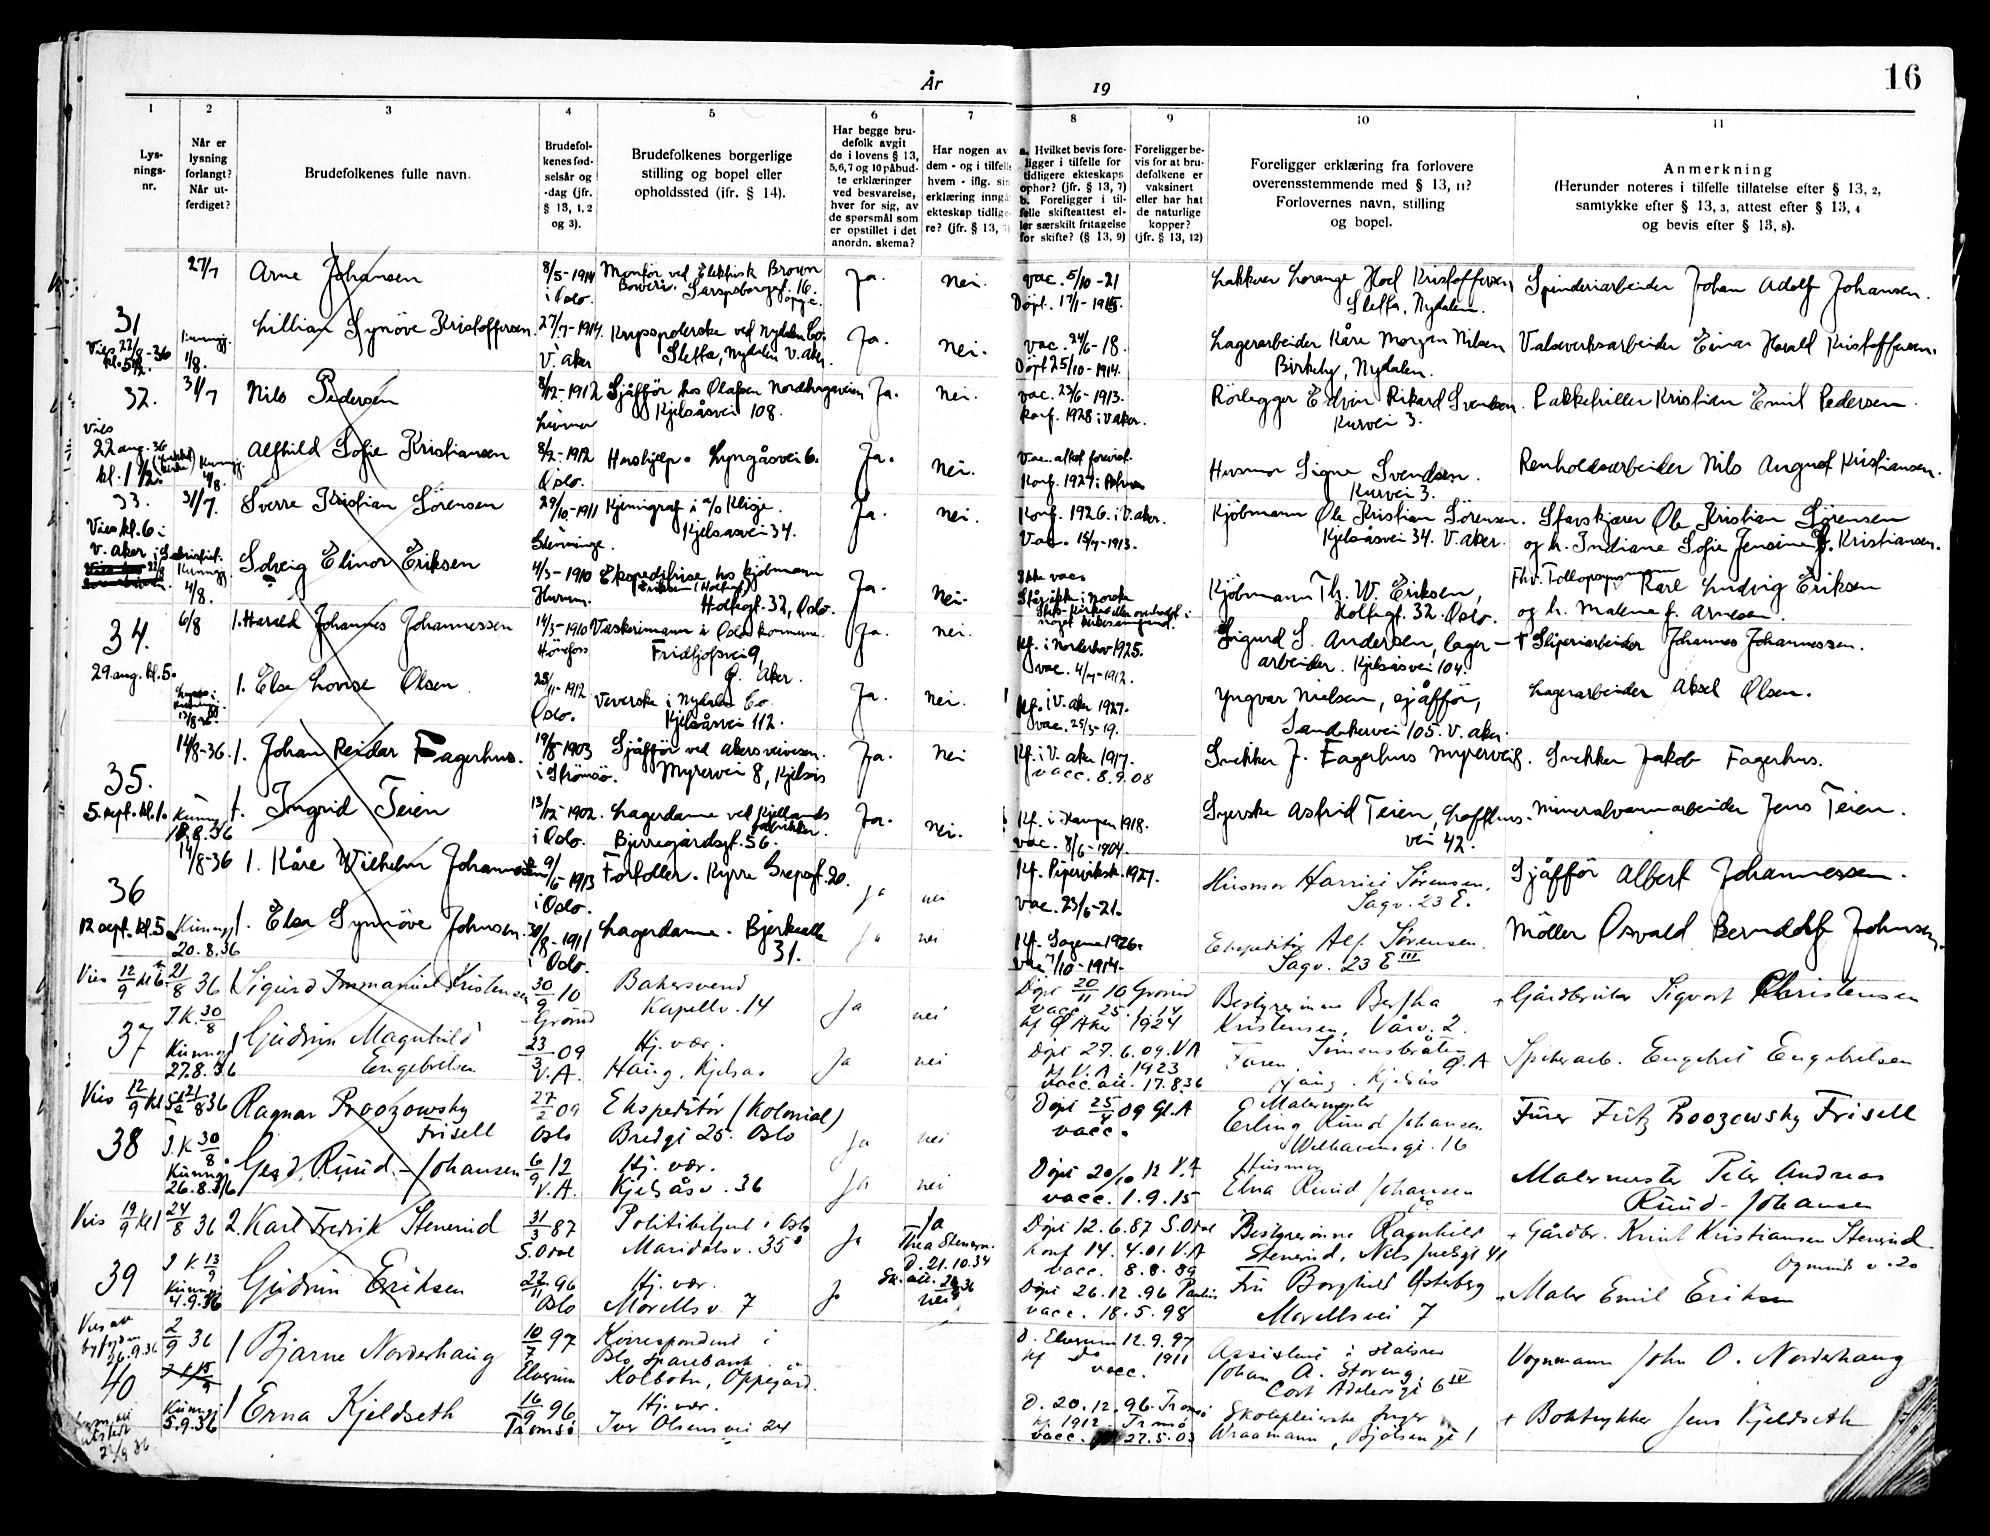 År 19
16
1 2 3 4 5 6 7 8 9 10 11
Lys-
nings-
nr.
Når er
lysning
forlangt?
Når ut-
ferdiget?
Brudefolkenes fulle navn.
Brudefol-
kenes fød-
selsår og
-dag (jfr.
§ 13, 1, 2
og 3).
Brudefolkenes borgerlige
stilling og bopel eller
opholdssted (ifr. § 14).
Har begge bru-
defolk avgit
de i lovens § 13,
5,6,7 og 10 påbud-
te erklæringer
ved besvarelse,
hver for sig, av
de spørsmål som
er opstillet i det
anordn. skema?
Har nogen av
dem - og i tilfelle
hvem - iflg. sin
erklæring inngå
ekteskap tidlige-
re? (jfr. § 13,
a. Hvilket bevis fore-
ligger i tilfelle for
tidligere ekteskaps
ophør? (jfr. § 13, 7)
b. Foreligger i til-
felle skifteattest el-
ler særskilt fritagelse
for skifte? (§ 13, 9)
Foreligger be-
vis for at bru-
defolkene er
vaksinert
eller har hat
de naturlige
kopper?
(jfr. § 13, 12)
Foreligger erklæring fra forlovere
overensstemmende med § 13, 11?
Forlovernes navn, stilling
og bopel.
Anmerkning
(Herunder noteres i tilfelle tillatelse efter § 13, 2,
samtykke efter § 13, 3, attest efter § 13, 4
og bevis efter § 13, 8).
31
27/7
Arne Johansen
8/5-1914
i Oslo.
Montör ved Elektrisk Brown
Boveri. Sarpsborggt. 16.
Ja.
Nei.
vac. 5/10-21
Döpt. 17/1-1915.
Hoel Kristoffersen,
Sletta, Nydalen.
Spinderiarbeider Johan Adolf Johansen.
Vies 22/8-36
1/8.
Lillian Synöve Kristoffersen.
27/7-1914.
V. aker
Sletta, Nydalen V. aker.
Ja.
Nei.
vac. 24/6-18.
Döpt 25/10-1914.
Lagerarbeider Kåre Morgan Nilsen
Birkely, Nydalen.
Valseverksarbeider Einar Harald Kristoffersen.
32.
31/7
Nils Pedersen
8/12-1912
Sjåfför hos Olafsen Nordhagaveien
Kjelsåsvei 108.
Ja.
Nei.
vac. 23/6-1913.
Konf. 1928 i V aker.
Rörlegger Edvin Rikard Svendsen.
Kurvei 3.
Kristian Emil Pedersen.
Vies
22 aug. 36
4/8.
Alfhild Sofie Kristiansen
8/2-1912
Oslo.
Hushjelp. Lyngåsvei 6.
Ja.
Nei.
Husmor Signe Svendsen.
Kurvei 3.
Renholdsarbeider Nils August Kristiansen.
33.
Vies kl. 6 i
V. aker
31/7.
Sverre Kristian Sörensen
29/10-1911
Kjemigraf i a/s Klisje.
Kjelsåsvei 34.
Ja.
Nei.
Konf. 1926. i V. aker.
Vac. 15/7-1913.
Kjöbmann Ole Kristian Sörensen.
Kjelsåsvei 34. V. aker.
Ole Kristian Sörensen
og h. Indiane Sofie Jensine f. Kristiansen.
4/8.
Solveig Elinor Eriksen
4/3-1910
Hurum.
Ekspeditrise hos kjöbmann
Eriksen (Holtegt)
Holtegt. 32, Oslo.
Ja.
Nei.
Ikke vacc
Kjöbmann Th. W. Eriksen,
Holtegt. 32. Oslo.
Karl Ludvig Eriksen
og h. Malene f. Arnesen.
34.
6/8
1. Harald Johannes Johannessen
14/3-1910
Hönefoss
Vaskerimann i Oslo kommune.
Fridtjofsvei 9,
Ö. Aker.
Ja.
Nei.
Kf. i Norderhov 1925.
vac. 4/7-1912.
Sigurd S. Andersen, lager-
arbeider. Kjelsåsvei 104.
† Sliperiarbeider Johannes Johannessen.
29. aug. kl. 5.
1. Else Lovise Olsen
25/11-1912
Oslo.
Veverske i Nydalen Co.
Kjelsåsvei 112.
Ja.
Nei.
Kf. i V. aker 1927.
vac. 25/3-19.
Yngvar Nielsen, sjåffør,
Sandakervei 105. V. aker.
Lagerarbeider Aksel Olsen.
35.
14/8-36.
1. Johan Reidar Fagerhus.
19/8-1903
i Strömsö.
Sjåfför ved akers veivesen.
Myrervei 8, Kjelsås
Ja.
Nei
Kf. i V. aker 1917.
vacc. 8.9.08
Snekker J. Fagerhus Myrervei 8.
Snekker Jakob Fagerhus.
5. sept. kl. 1.
1. Ingrid Teien
13/12-1902.
i Oslo.
Lagerdame ved Kjellands
fabrikker.
Bjerregårdsgt. 56.
Ja.
Nei.
Kf. i Kampen 1918.
vac. 8/6-1904.
Syerske Astrid Teien, Lofthus-
vei 42.
Mineralvannarbeider Jens Teien.
36
14/8-36
1. Kåre Wilhelm Johannessen
9/6-1913
i Oslo.
Fortoller. Kyrre Grepsgt. 20.
Ja
nei
Kf. Piperviksk. 1927.
vac. 23/6-21.
Husmor Harriet Sørensen,
Sagv. 23 E.
Sjåfför Albert Johannessen.
12 sept. kl. 5.
Kunngj
20.8.36
1. Elsa Synnöve Johnsen.
30/8-1911
i Oslo.
Lagerdame. Bjerkealle
31.
Ja
nei
Kf. Sagene 1926.
vac 7/10-1914.
Ekspeditör Alf Sörensen.
Sagv. 23 E III
Möller Osvald Berndolf Johnsen.
Vies 12/9 kl 6
21/8 36
1 Sigurd Immanuel Kristensen
30/9 10
Grorud
Bakersvend
Kapellv. 14
Ja
nei
Döpt 20/11 10 Grorud
vacc. 25.1.14
kf Ø Aker 1924
Bestyrerinne Bertha
Kristensen, Vårv. 2.
+ Gårdbruker Sigvart Christensen
37
J K. 30/8
Kunngj
27.8.36
1 Gudrun Magnhild
Engebretsen
23/3 09
V.A.
Hj. vær.
Haug, Kjelsås
Ja
nei
Döpt 27.6.09. V A
kf V.A. 1923
vacc att. 17.8.36
Simensbråten
Ø. A
Haug. Kjelsås
Engebret Engebretsen
Vies 12/9 kl 5 1/2
21/8 36
Ragnar Proozowsky
Frisell
27/2 09
Oslo
Ekspeditör (Kolonial)
Bredgt 25. Oslo
Ja
nei
Döpt 25/4 09 Gl. A
vacc.
Malermester
Erling Ruud Johansen
Welhavensgt. 16
Furer Fritz Roozowsky Frisell
38
J. K 30/8
Kunngj.
26.8.36
Gerd Ruud-Johansen
6/9 12
V.A.
Hj. vær.
Kjelsåsv. 36
Ja
nei
Döpt 20/10 12 V.A
vacc. 1.9.15
Husmor
Elna Ruud Johansen
Malermester Peter Andreas
Ruud-Johansen
Vies 19/9 kl 1
24/8 36
2 Karl Fredrik Stenerud
31/3 87
S. Odal
Politibetjent i Oslo
Maridalsv. 35
Ja
Ja
Thea Stenerud
D. 21.10.34
Döpt 12.6.87 S. Odal
Konf 14.4.01 V.A
vacc. 8.8.89
Bestyrerinne Ragnhild
Stenerud, Nils Juelsgt 41
+ Gårdbr. Knut Kristiansen Stenerud
39
J K 13/9
Kunngj
4.9.36
Gudrun Eriksen
22/11 96
Oslo
Hj. vær.
Morells v. 7
Ja
nei
Döpt 26.12.96 Paulus
vacc. 18.5.98
Fru Borghild Østeberg
Morells vei 7
Maler Emil Eriksen
Vies av
byfogden
26.9.36
2/9 36
1 Bjarne Norderhaug
10/7 97
Elverum
Korrespondent i
Oslo Sparebank.
Kolbotn, Oppegård.
D. Elverum 12.9.97
kf do 1911
vacc.
Assistent i statsrev
Johan A. Storeng,
Cort Adelersgt 6 IV
Vognmann John O. Norderhaug
40
Kunngj
5.9.36
1 Erna Kjeldseth
16/9 96
Tromsö
Hj. vær.
Ivar Olsens vei 24
D. 20.12.96 Tromsö
kf 1912. Tromsö
vacc. 27.5.03
Skolepleierske Inger
Wraamann, Bjølsengt 1
+ Boktrykker Jens Kjeldseth